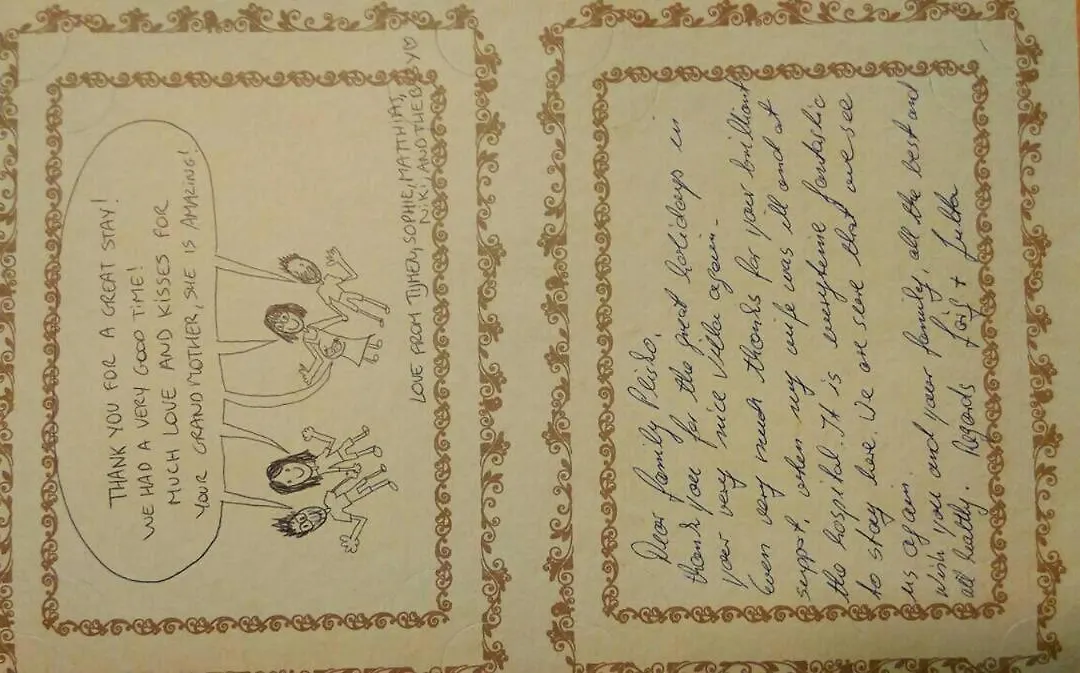 THANK YOU FOR A GREAT STAY!
WE HAD A VERY GOOD TIME!
MUCH LOVE AND KISSES FOR
YOUR GRANDMOTHER, SHE IS AMAZING!
LOVE FROM TIJMEN, SOPHIE, MATTHIAS,
NIKI, AND THE BABY
Dear family Plisko,
thank you for the great holidays in
your very nice villa again.
Even very much thanks for your brilliant
support, when my wife was ill and at
the hospital. It is everytime fantastic
to stay here. We are sure that we see
us again.
Wish you and your family, all the best and
all healthy. Regards +